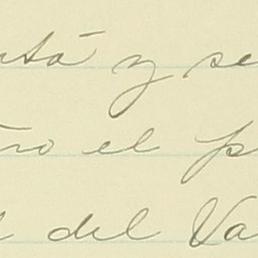 ntá y se
ro el p
l del Va